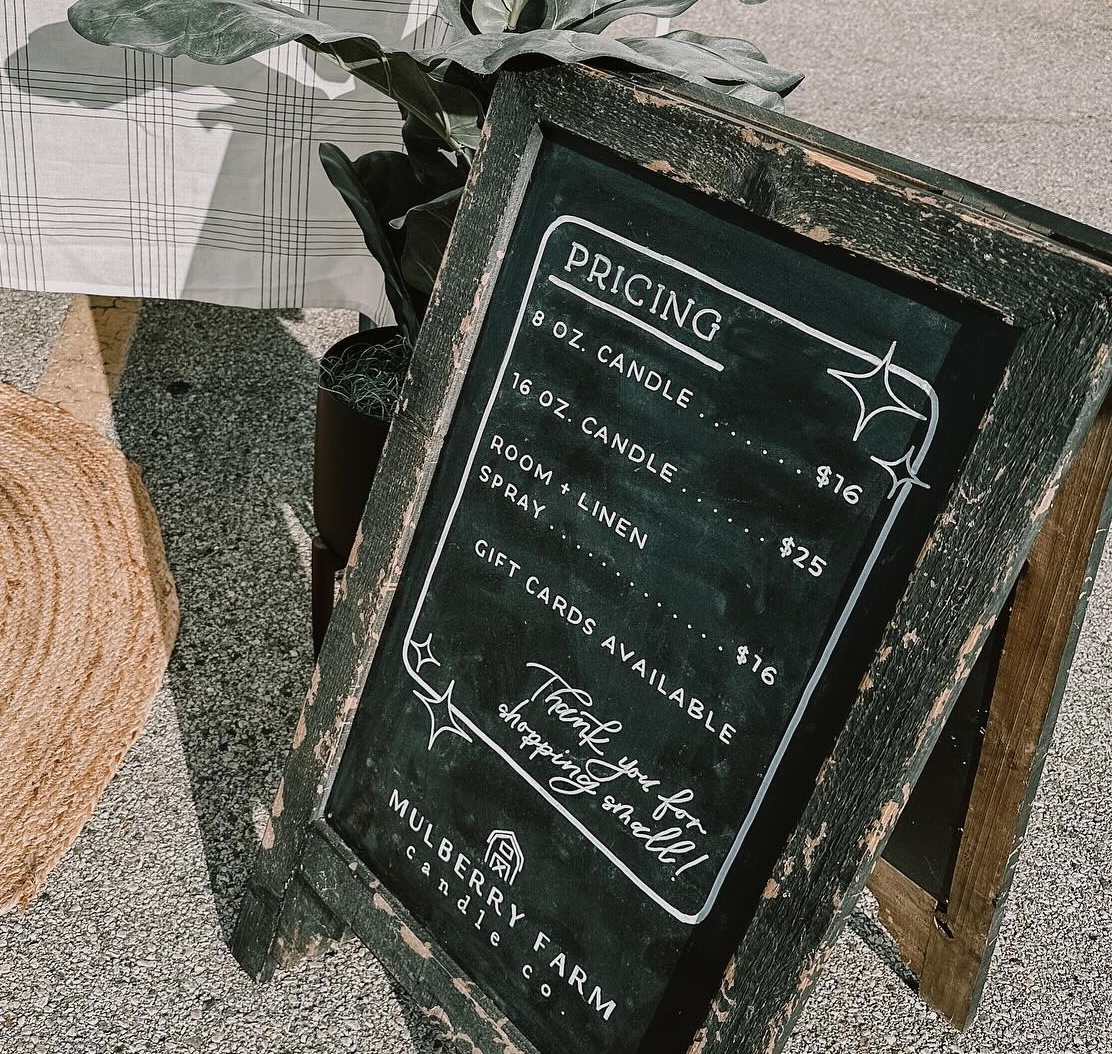 PRICING
8 OZ. CANDLE . . . . . . . . $16
16 OZ. CANDLE . . . . . . . $25
ROOM + LINEN
SPRAY . . . . . . . . . . . . . $16
GIFT CARDS AVAILABLE
Thank you for
shopping small!
MULBERRY FARM
candle co.